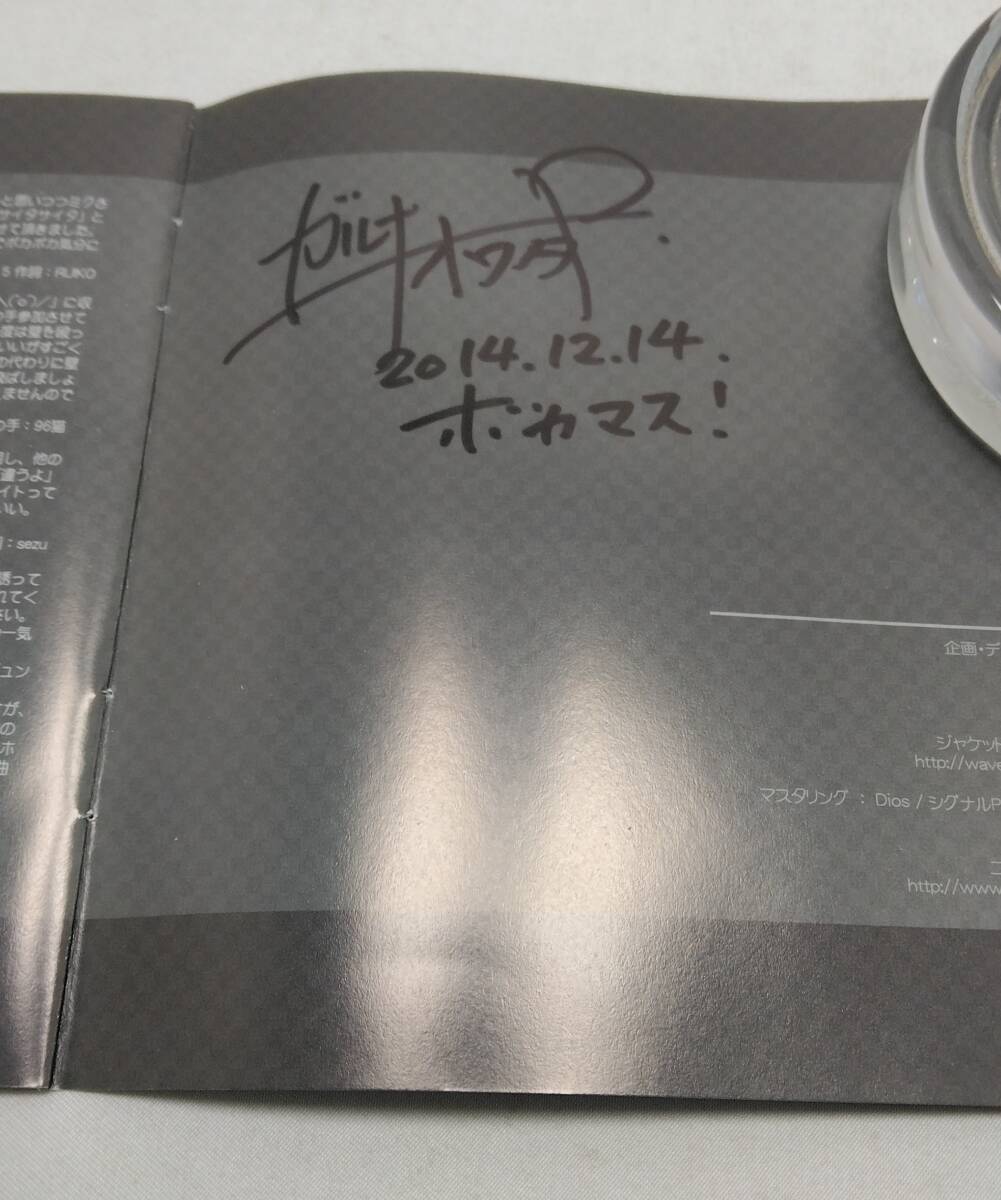 と思いつつミクさ
サイタサイタ」と
せて頂きました。
でポカポカ気分に
5 作詞：RUKO
＼(^o^)／」に収
の手参加させて
いいがすごく
の代わりに壁
ばしましょ
ませんので
の手：96猫
し、他の
「違うよ」
イトって
いい。
：sezu
誘って
れてく
さい。
一気
ュン
すが、
の
ホ
曲
ガルナ
オワタP
2014.12.14.
ボカマス!
企画・デ
ジャケット
http://wave
マスタリング : Dios / シグナルP
http://www